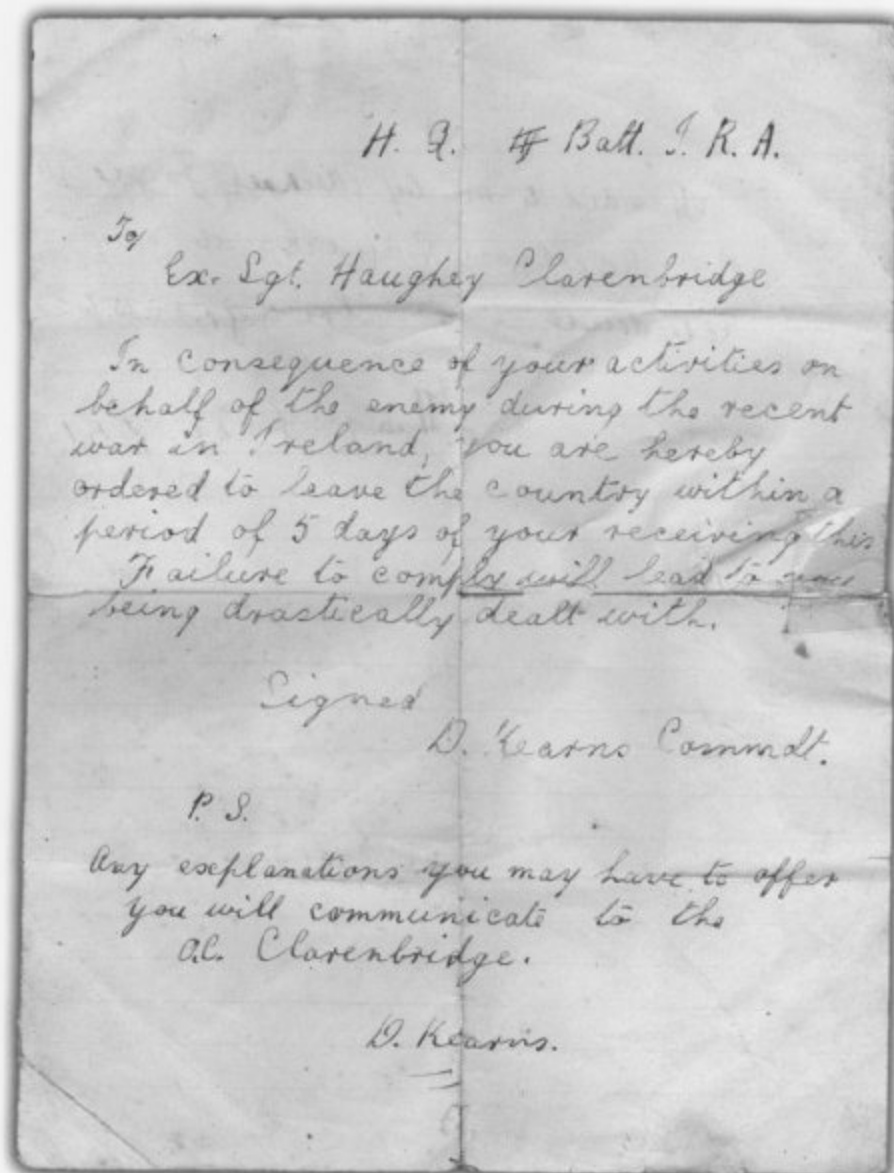 H. Q. Batt. I. R. A.
To/
Ex. Sgt. Haughey Clarenbridge
In consequence of your activities on
behalf of the enemy during the recent
war in Ireland, you are hereby
ordered to leave the country within a
period of 5 days of your receiving this
Failure to comply will lead to your
being drastically dealt with.
Signed
D. Kearns Commdt.
P. S.
Any explanations you may have to offer
you will communicate to the
O.C. Clarenbridge.
D. Kearns.